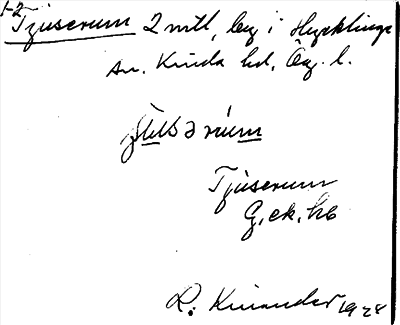 1-2
Tjuserum 2 mtl, by i Hycklinge
sn. Kinda hd, Ög. l.
Tjuserum
G. ek. kb
R. Kinander 1928